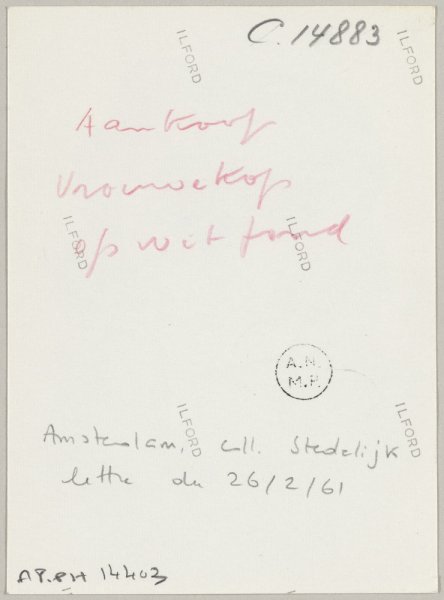 C. 14883
ILFORD
ILFORD
Aankoop
Vrouwekop
op wit fond
ILFORD
ILFORD
A.N.
M.P.
ILFORD
ILFORD
Amsterdam, coll. Stedelijk
lettre du 26/2/61
AP.PH 14403